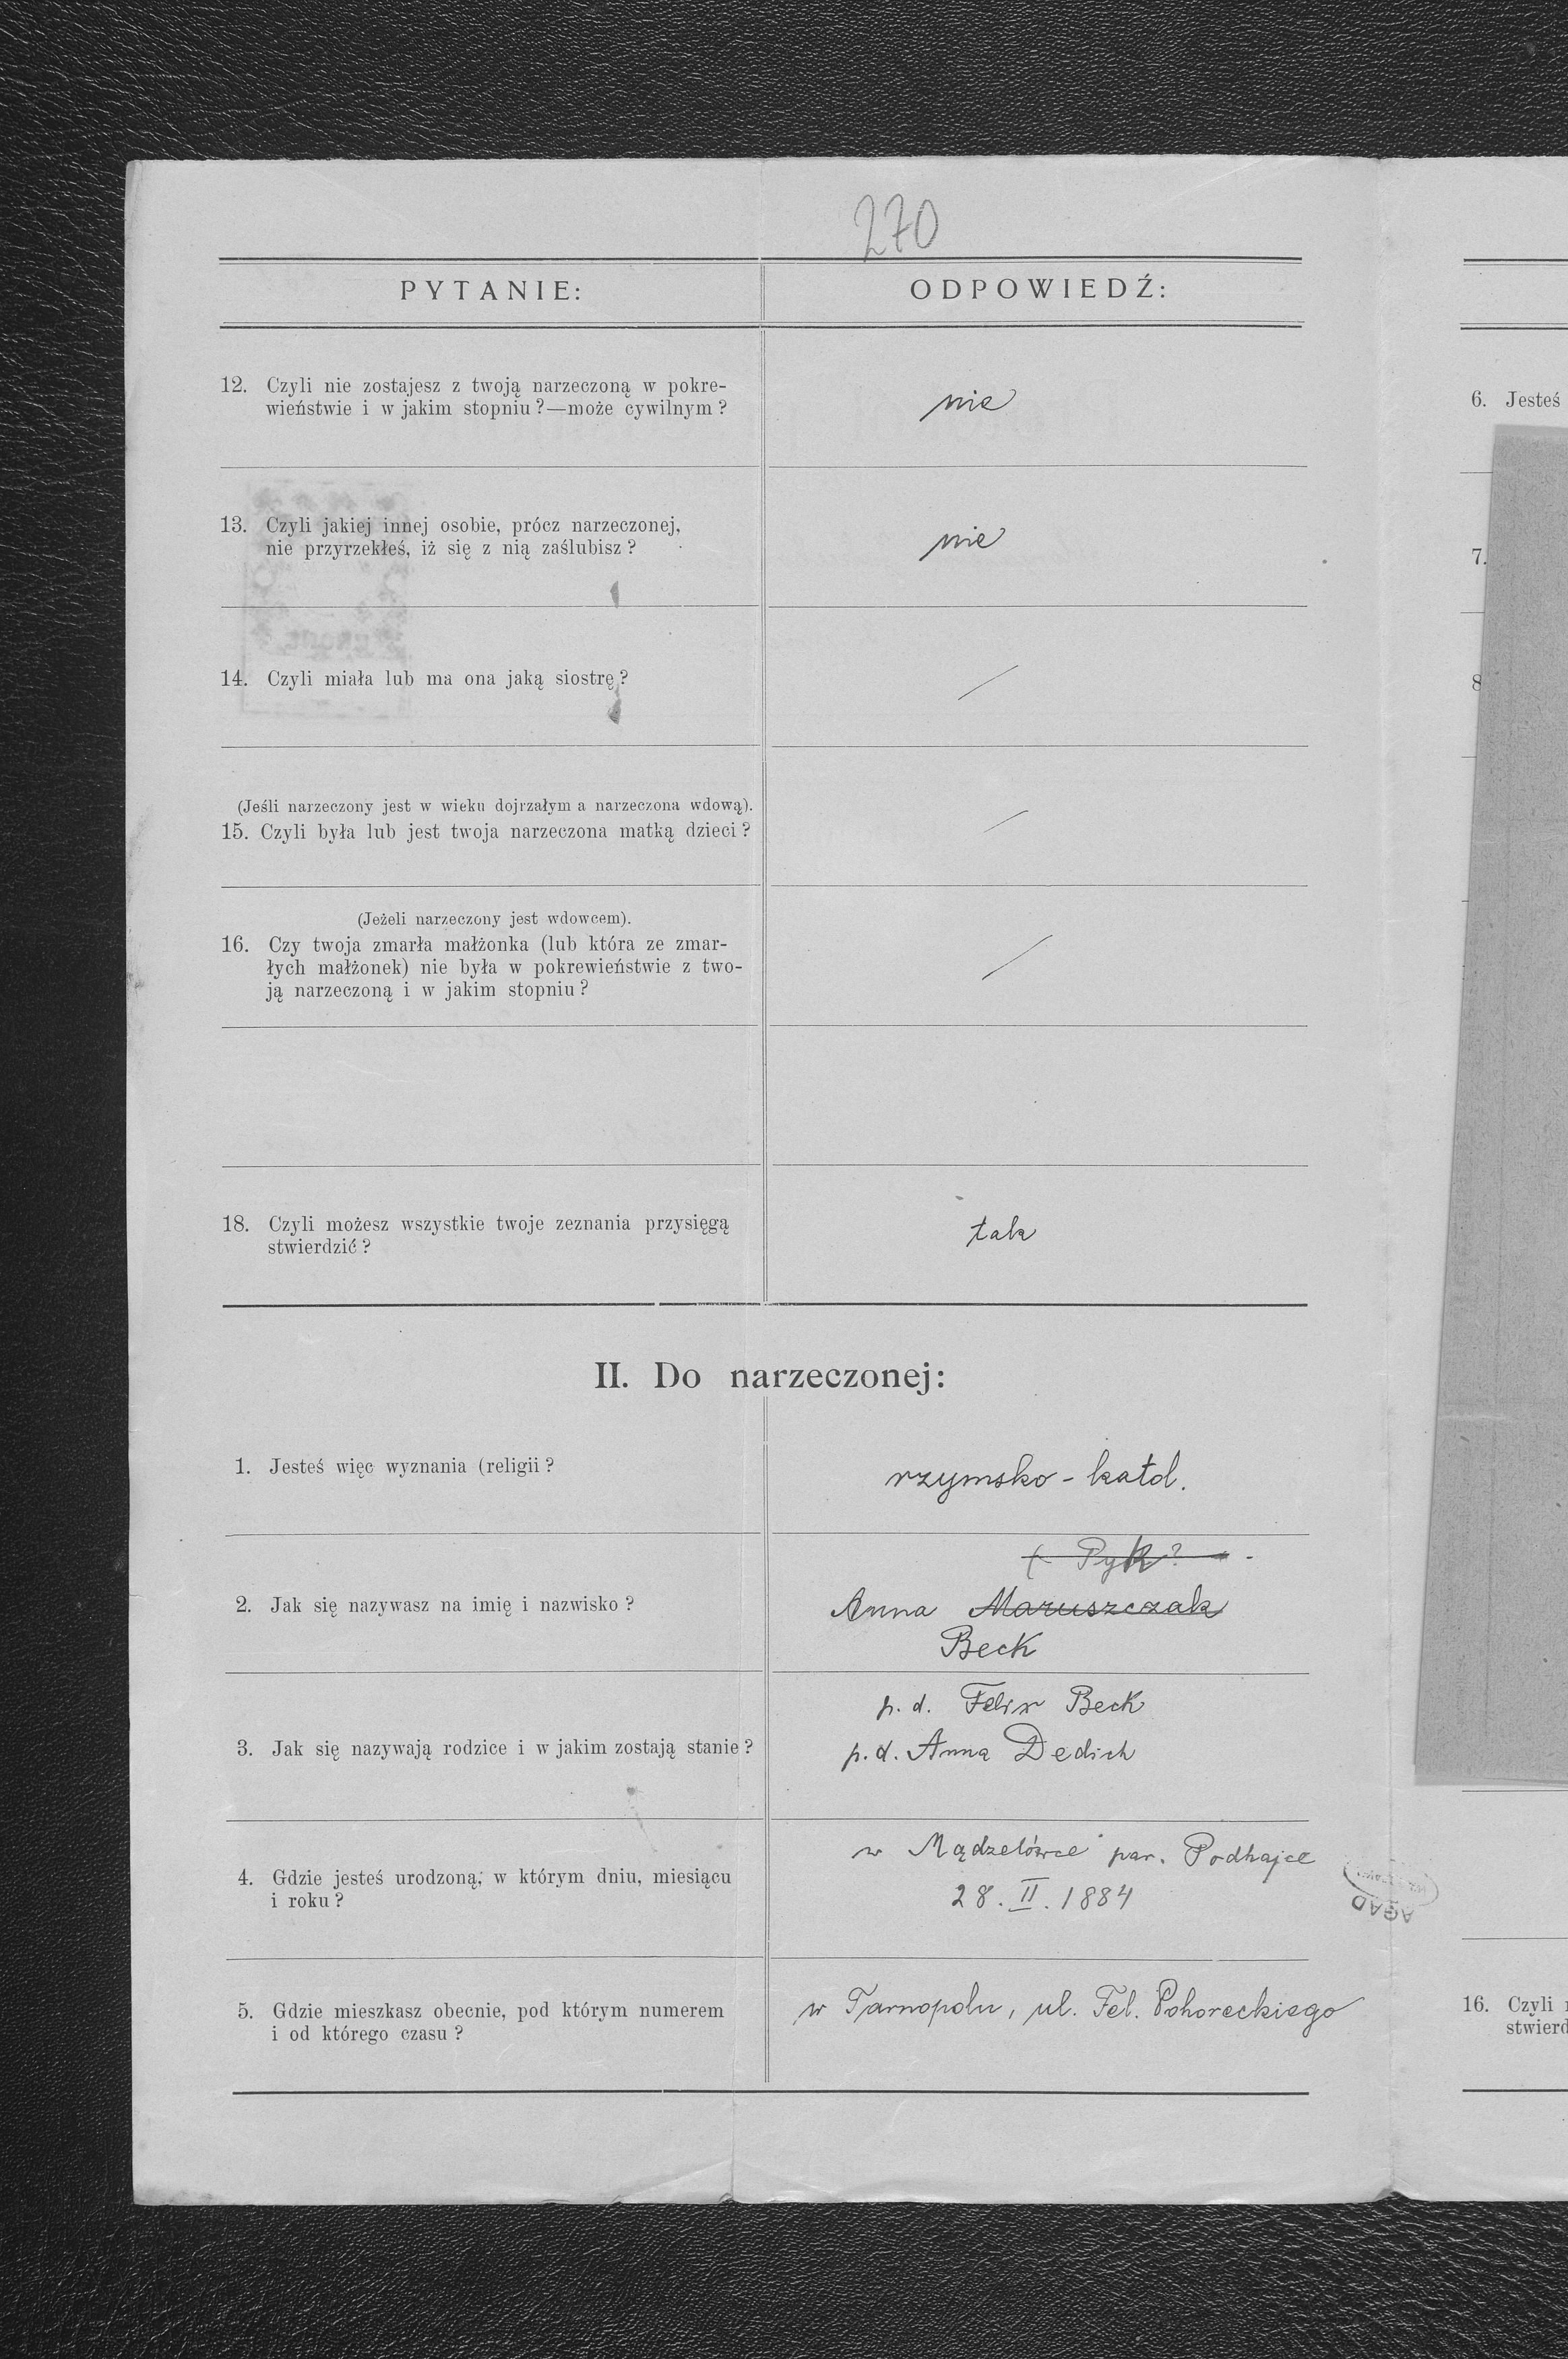 270
PYTANIE:
ODPOWIEDŹ:
12. Czyli nie zostajesz z twoją narzeczoną w pokre-
wieństwie i w jakim stopniu?—może cywilnym?
nie
13. Czyli jakiej innej osobie, prócz narzeczonej,
nie przyrzekłeś, iż się z nią zaślubisz?
nie
14. Czyli miała lub ma ona jaką siostrę?
/
(Jeśli narzeczony jest w wieku dojrzałym a narzeczona wdową).
15. Czyli była lub jest twoja narzeczona matką dzieci?
/
(Jeżeli narzeczony jest wdowcem).
16. Czy twoja zmarła małżonka (lub która ze zmar-
łych małżonek) nie była w pokrewieństwie z two-
ją narzeczoną i w jakim stopniu?
/
18. Czyli możesz wszystkie twoje zeznania przysięgą
stwierdzić?
tak
II. Do narzeczonej:
1. Jesteś więc wyznania (religii?
rzymsko-katol.
2. Jak się nazywasz na imię i nazwisko?
( Pyk?
Anna Maruszczak
Beck
3. Jak się nazywają rodzice i w jakim zostają stanie?
p. d. Felix Beck
p. d. Anna Dedich
4. Gdzie jesteś urodzoną, w którym dniu, miesiącu
i roku?
w Mądzelówce par. Podhajce
28. II. 1884
5. Gdzie mieszkasz obecnie, pod którym numerem
i od którego czasu?
w Tarnopolu, ul. Fel. Pohoreckiego
AGAD
6. Jesteś
7.
8
16. Czyli
stwierd